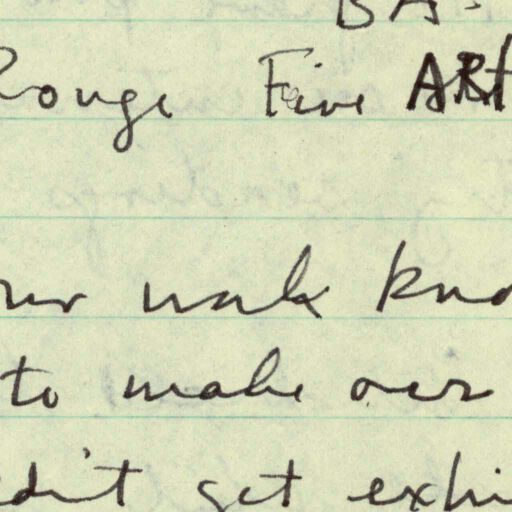 BA.
Rouge Fine ART
our work kno
to make our
edit get exhi